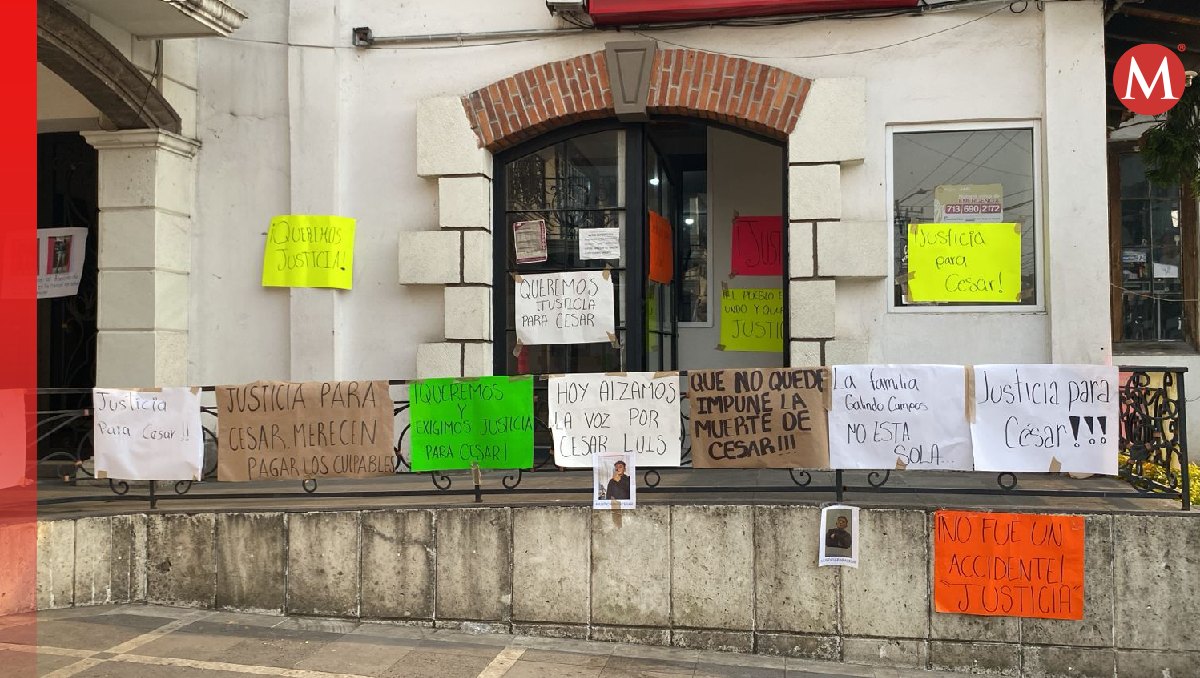 M
713 690 2172
¡QUEREMOS
JUSTICIA!
QUEREMOS
JUSTICIA
PARA CESAR
JUSTI
¡Justicia
para
Cesar!
Justicia
Para Cesar!!
JUSTICIA PARA
CESAR MERECEN
PAGAR LOS CULPABLES
¡QUEREMOS
Y
EXIGIMOS JUSTICIA
PARA CESAR!
HOY ALZAMOS
LA VOZ POR
CESAR LUIS
QUE NO QUEDE
IMPUNE LA
MUERTE DE
CESAR!!!
La familia
Galindo Campos
NO ESTA
SOLA...
Justicia para
César!!!
¡NO FUE UN
ACCIDENTE!
"JUSTICIA"